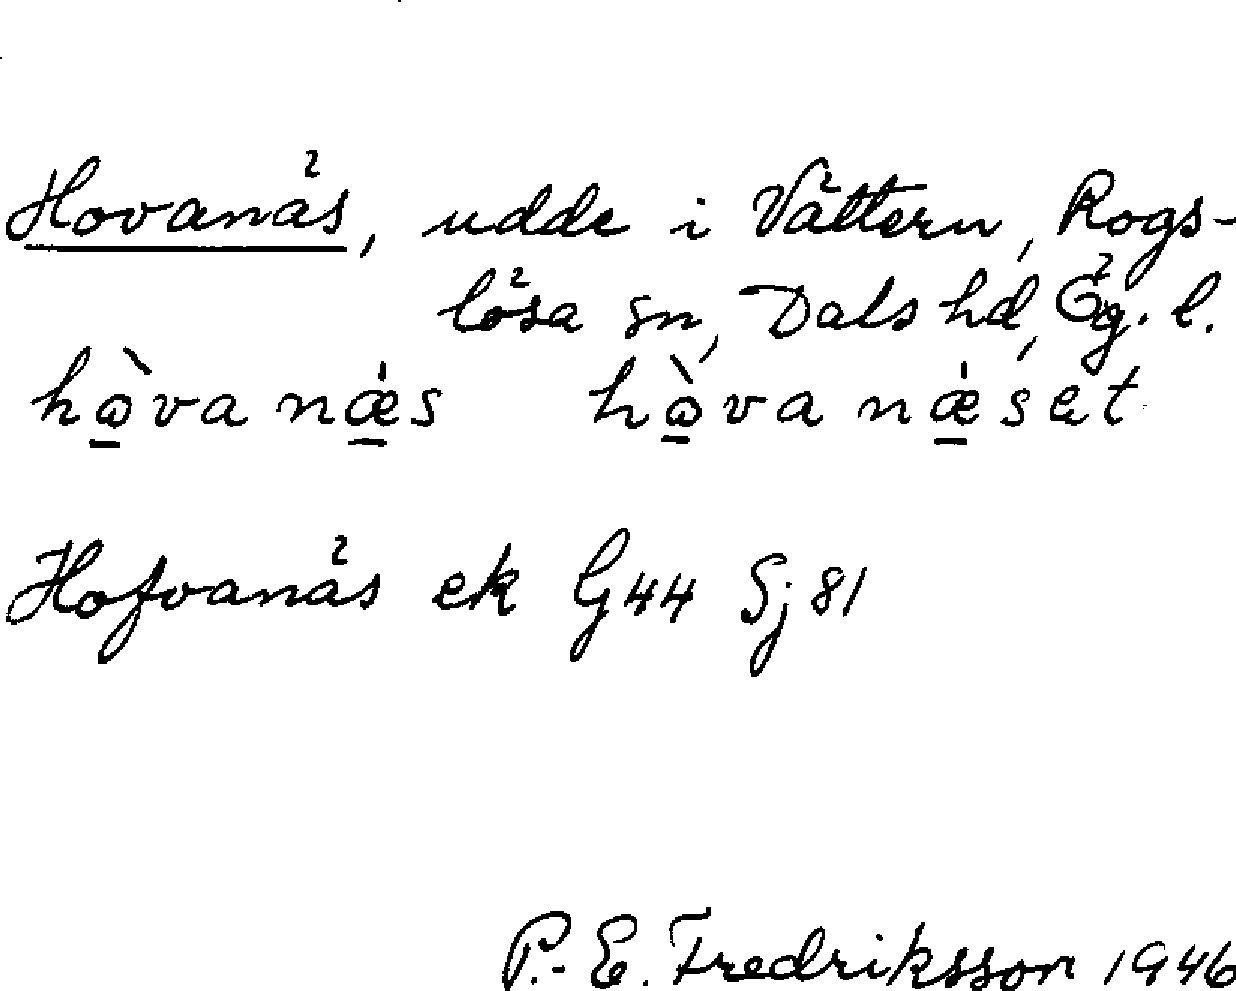 Hovanäs, udde i Vättern, Rogs-
lösa sn, Dals hd, Ög. l.
hὼ̱va nǽ̱s hὼ̱va nǽ̱set
Hofvanäs ek G44 Sj 81
P.-E. Fredriksson 1946